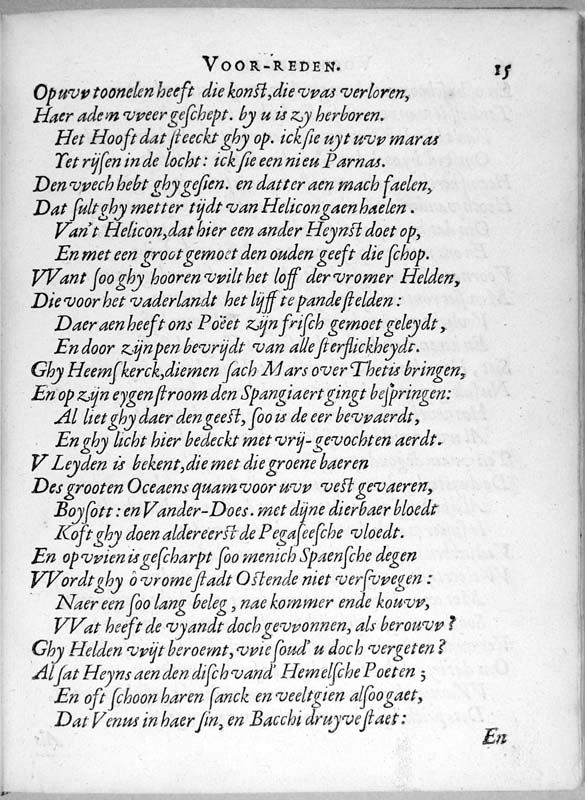 VOOR-REDEN. 15
Op uvv toonelen heeft die konſt, die vvas verloren,
Haer adem vveer geſchept. by u is zy herboren.
Het Hooft dat ſteeckt ghy op. ick ſie uyt uvv maras
Yet rijſen in de locht: ick ſie een nieu Parnas.
Den vvech hebt ghy geſien. en datter aen mach faelen,
Dat ſult ghy metter tijdt van Helicon gaen haelen.
Van't Helicon, dat hier een ander Heynſt doet op,
En met een groot gemoet den ouden geeft die ſchop.
VVant ſoo ghy hooren vvilt het loff der vromer Helden,
Die voor het vaderlandt het lijff te pande ſtelden:
Daer aen heeft ons Poëet zijn friſch gemoet geleydt,
En door zijn pen bevrijdt van alle ſterflickheydt.
Ghy Heemſkerck, diemen ſach Mars over Thetis bringen,
En op zijn eygen ſtroom den Spangiaert gingt beſpringen:
Al liet ghy daer den geeſt, ſoo is de eer bevvaerdt,
En ghy licht hier bedeckt met vrij-gevochten aerdt.
V Leyden is bekent, die met die groene haeren
Des grooten Oceaens quam voor uvv veſt gevaeren,
Boyſott: en Vander-Does. met dijne dierbaer bloedt
Koſt ghy doen aldereerſt de Pegaſeeſche vloedt.
En op vvien is geſcharpt ſoo menich Spaenſche degen
VVordt ghy ô vrome ſtadt Oſtende niet verſvvegen:
Naer een ſoo lang beleg, nae kommer ende kouvv,
VVat heeft de vyandt doch gevvonnen, als berouvv?
Ghy Helden vvijt beroemt, vvie ſoud' u doch vergeten?
Al ſat Heyns aen den diſch vand' Hemelſche Poeten;
En oft ſchoon haren ſanck en veeltgien alſoo gaet,
Dat Venus in haer ſin, en Bacchi druyve ſtaet:
En